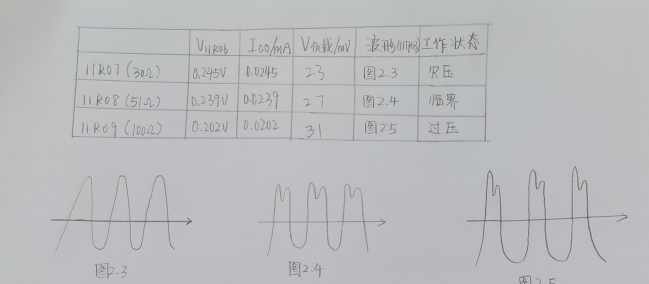 V11R06 Ico/mA V负载/mV 波形(11TP03) 工作状态
11R07(30Ω) 0.245V 0.0245 23 图2.3 欠压
11R08(51Ω) 0.239V 0.0239 27 图2.4 临界
11R09(100Ω) 0.202V 0.0202 31 图2.5 过压
图2.3 图2.4 图2.5